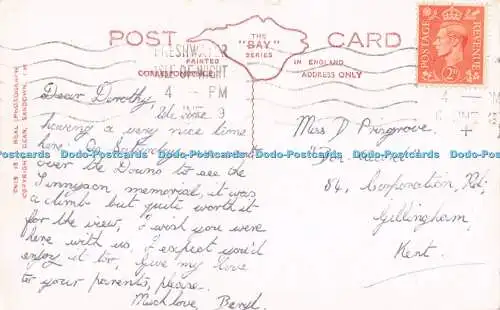 POST CARD
THE
"BAY"
SERIES
PRINTED
IN ENGLAND
CORRESPONDENCE
ADDRESS ONLY
FRESHWATER
ISLE OF WIGHT
4 - PM
9
POSTAGE
REVENUE
2D
THIS IS A REAL PHOTOGRAPH
COPYRIGHT DEAN, SANDOWN,
Dear Dorothy,
We are
having a very nice time
here. On Saturday
over the Downs to see the
Tennyson memorial, it was
a climb but quite worth it
for the view, I wish you were
here with us, I expect you'd
enjoy it too, Give my love
to your parents, please.
Much love, Beryl.
Miss D Pringrove
84, Corporation Rd;
Gillingham,
Kent.
Dodo-Postcards Dodo-Postcards Dodo-Postcards Dodo-Postcards